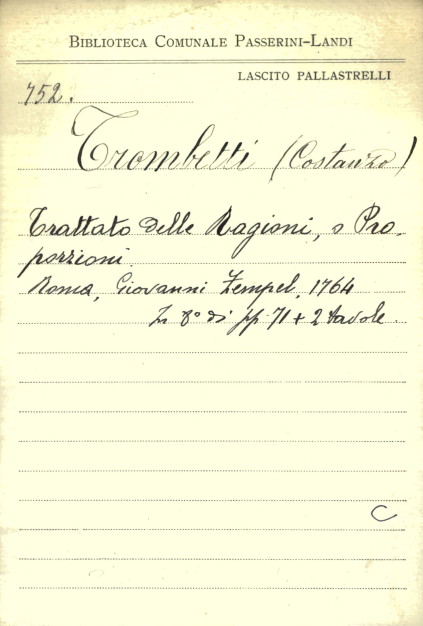 BIBLIOTECA COMUNALE PASSERINI-LANDI
LASCITO PALLASTRELLI
752.
Trombetti (Costanzo)
Trattato delle Ragioni, o Pro,
porzioni.
Roma, Giovanni Zempel, 1764
In 8° di pp 71 + 2 tavole.
C